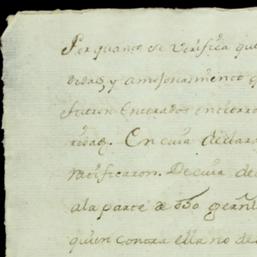 Por quanto se verifica que
vidad, y amojonamiento q
fueron Enterados en cierro
ridad. En cuia declara
ratificaron. De cuia de
a la parte de
quien contra ella no de